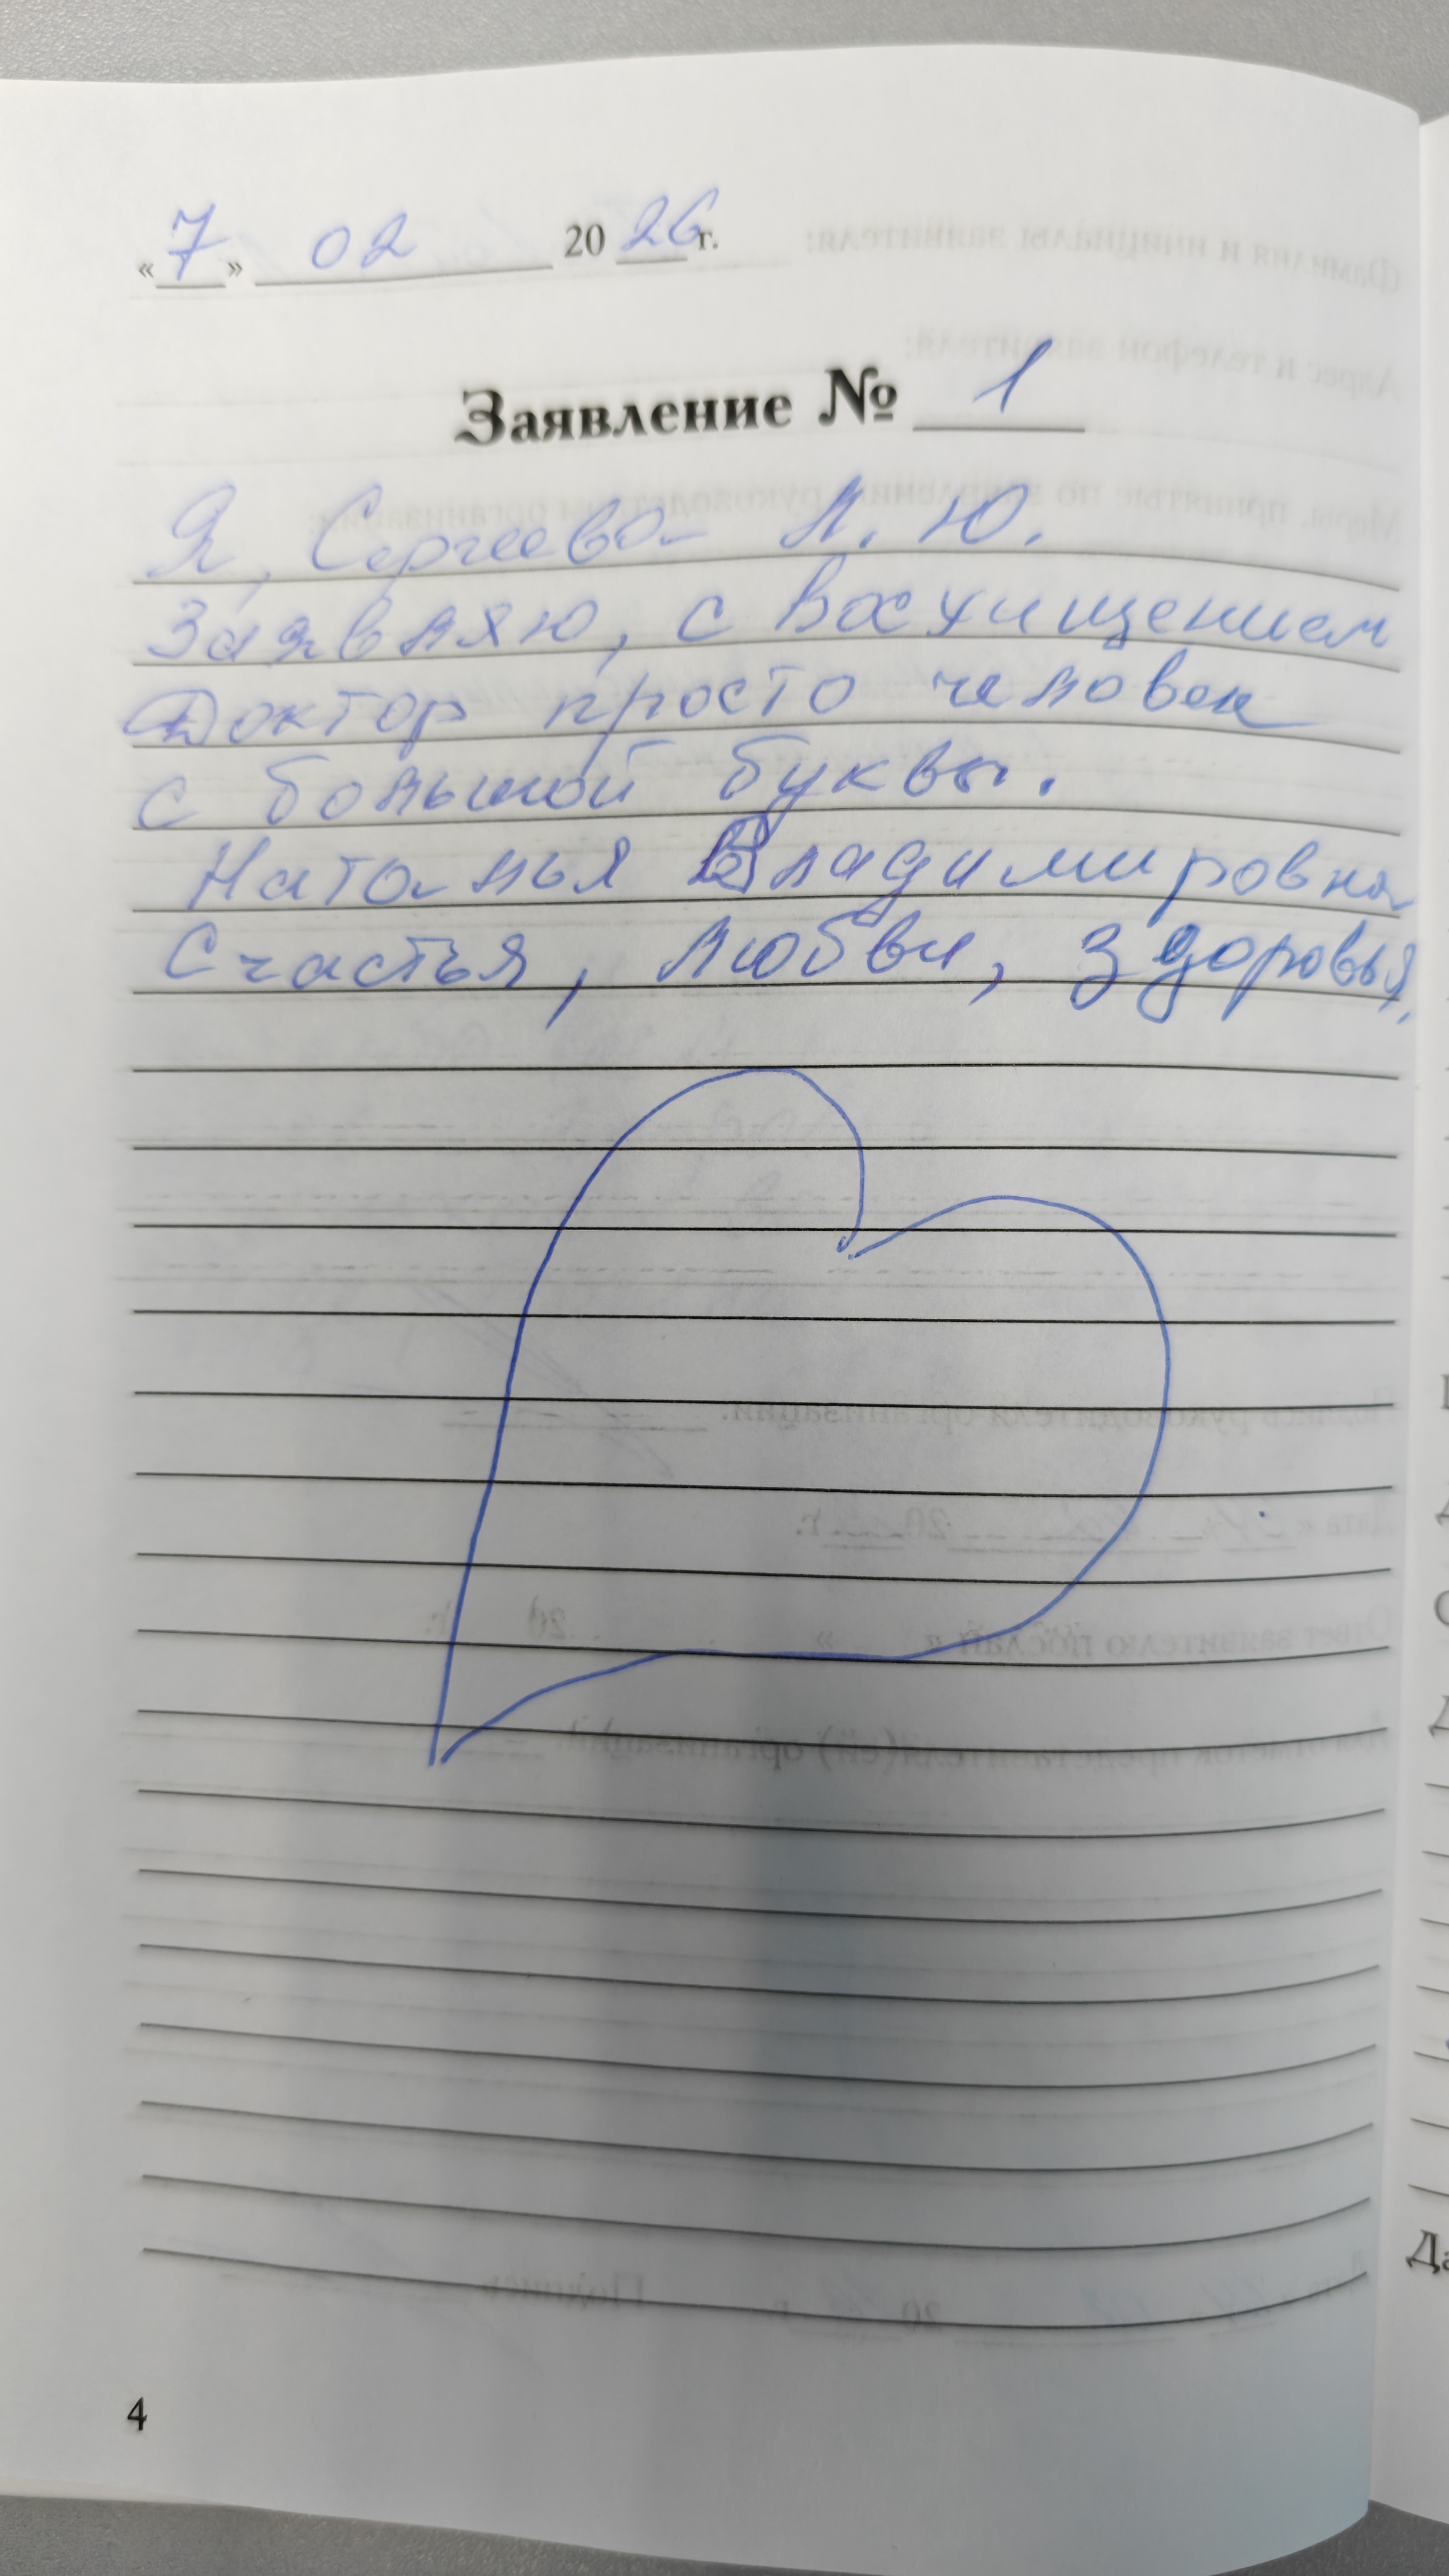 «7» 02 2026 г.
Заявление № 1
Я, Сергеева Л. Ю.
Заявляю, с восхищением
Доктор просто человек
с большой буквы.
Наталья Владимировна
Счастья, любви, здоровья,
4